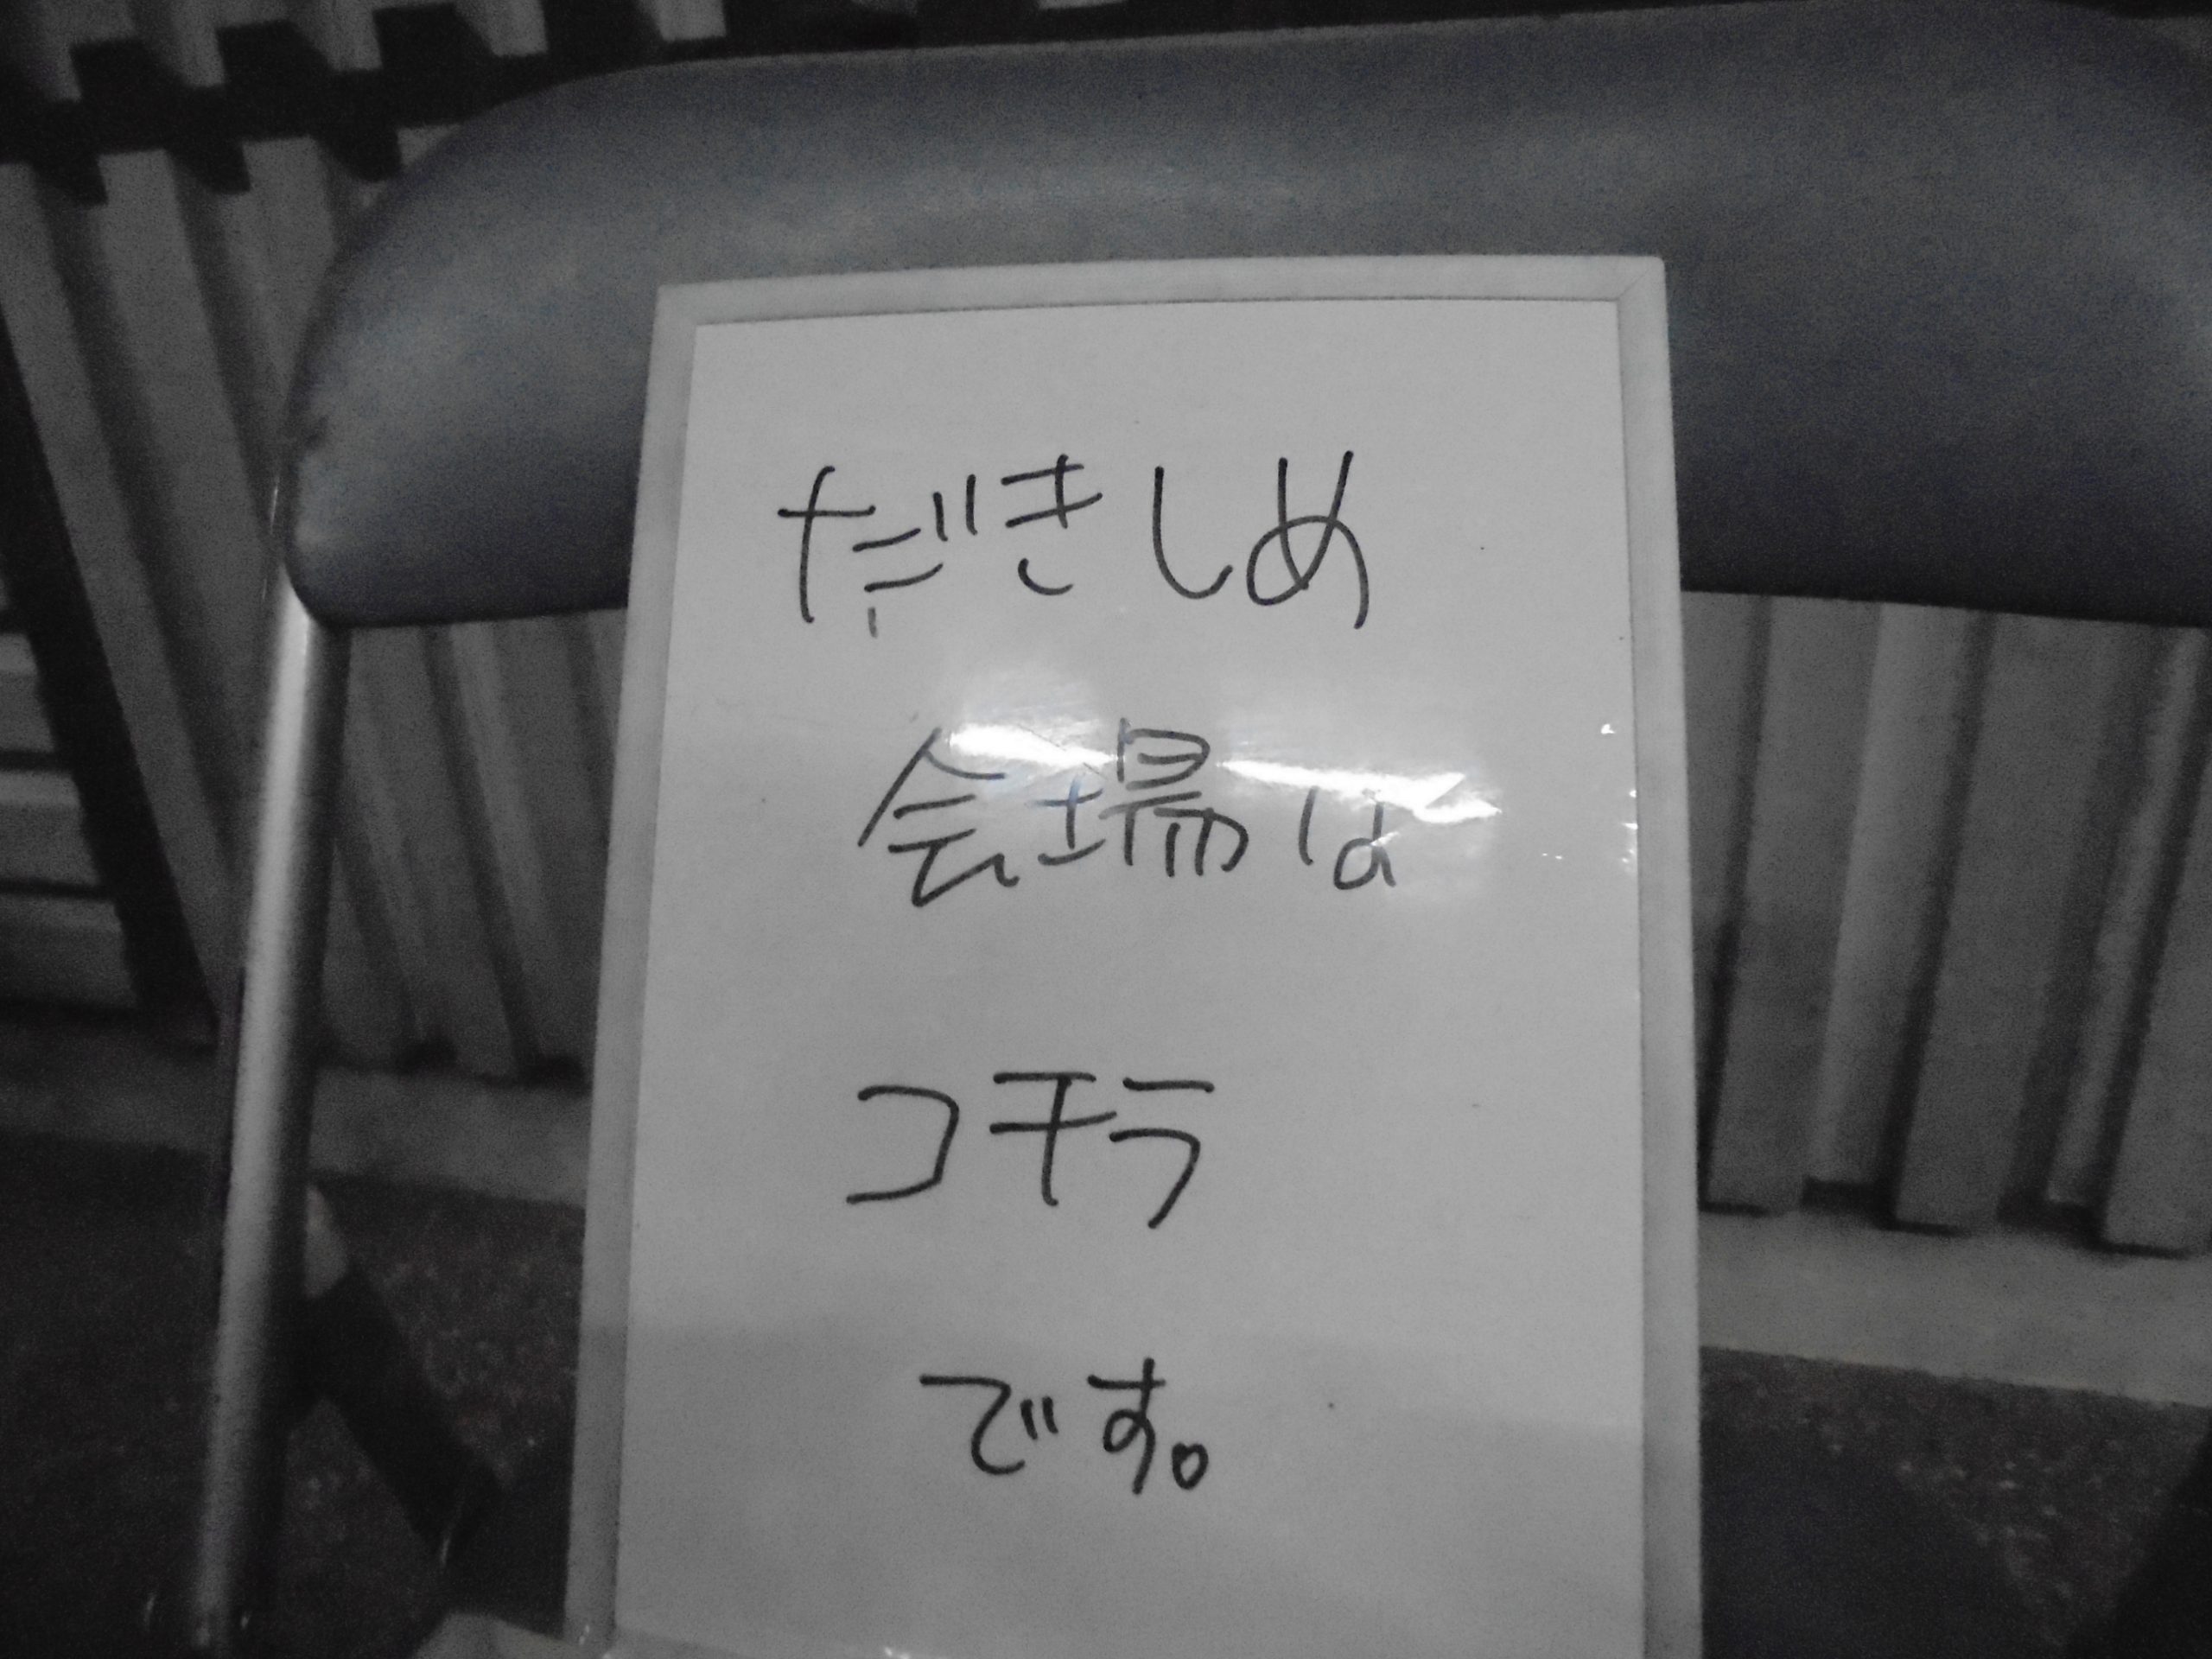 だきしめ
会場は
コチラ
です。